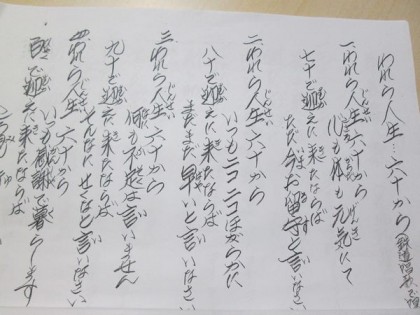 われら人生…六十から
一、われら人生六十から
心も体も元気にて
七十で迎えに来たならば
ただ今お留守と言いなさい
二、われら人生六十から
いつもニコニコほがらかに
八十で迎えに来たならば
まだまだ早いと言いなさい
三、われら人生六十から
何も不足は言いません
九十で迎えに来たならば
そんなにせくなと言いなさい
四、われら人生六十から
いつも感謝で暮らします
百で迎えに来たならば